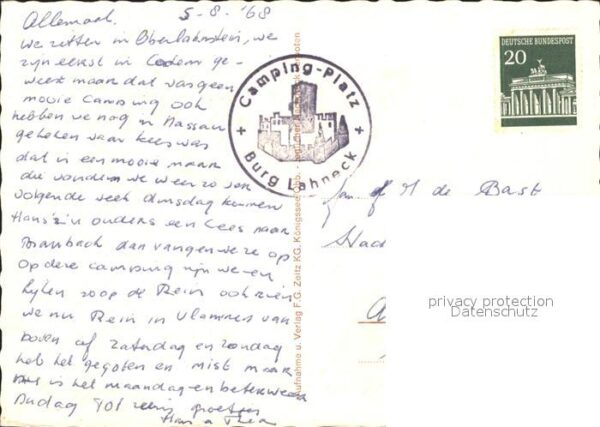 Allemaal. 5-8-'68
We zitten in Oberlahnstein, we
zijn eerst in Cochem ge-
weest maar dat was geen
mooie Camping ook
hebben we nog in Nassau
gekeken waar Kees was
dat is een mooie maar
die vonden we weer zo
volgende week dinsdag komen
Hans z'n ouders en Cees naar
Braubach dan vangen we ze op
op deze camping zijn we en
kijken zo op de Rein ook
we nu Rein in Vlammen van
boven af zaterdag en zondag
heb het gegoten en mist maar
nu is het maandag en beter weer
groetjes
Hans a Thea
Camping-Platz
+ +
Burg Lahneck
Aufnahme u. Verlag F.G. Zeitz KG, Königssee/Obb.
DEUTSCHE BUNDESPOST
20
Fam M de Bast
Stad
privacy protection
Datenschutz